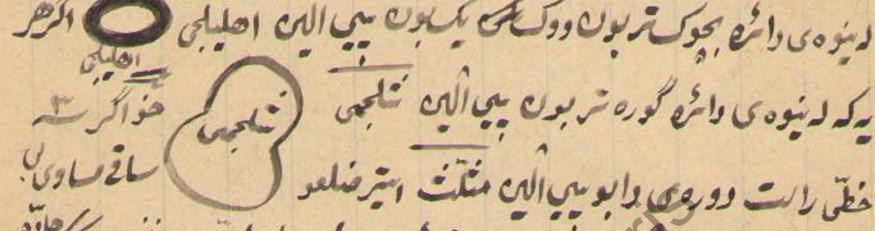 له نیوه‌ی دائره بچوکتر بون و وکـ یک بون پیی الین اهلیلجی اگر هر
اهلیلجی
یه که له نیوه‌ی دائره گوره تر بون پیی الین شلجمی
شلجمی
خو اگر ٣
خطی راست دوره‌ی دابو پیی الین مثلّث ایتر ضلعو
ساقی مساوی بی